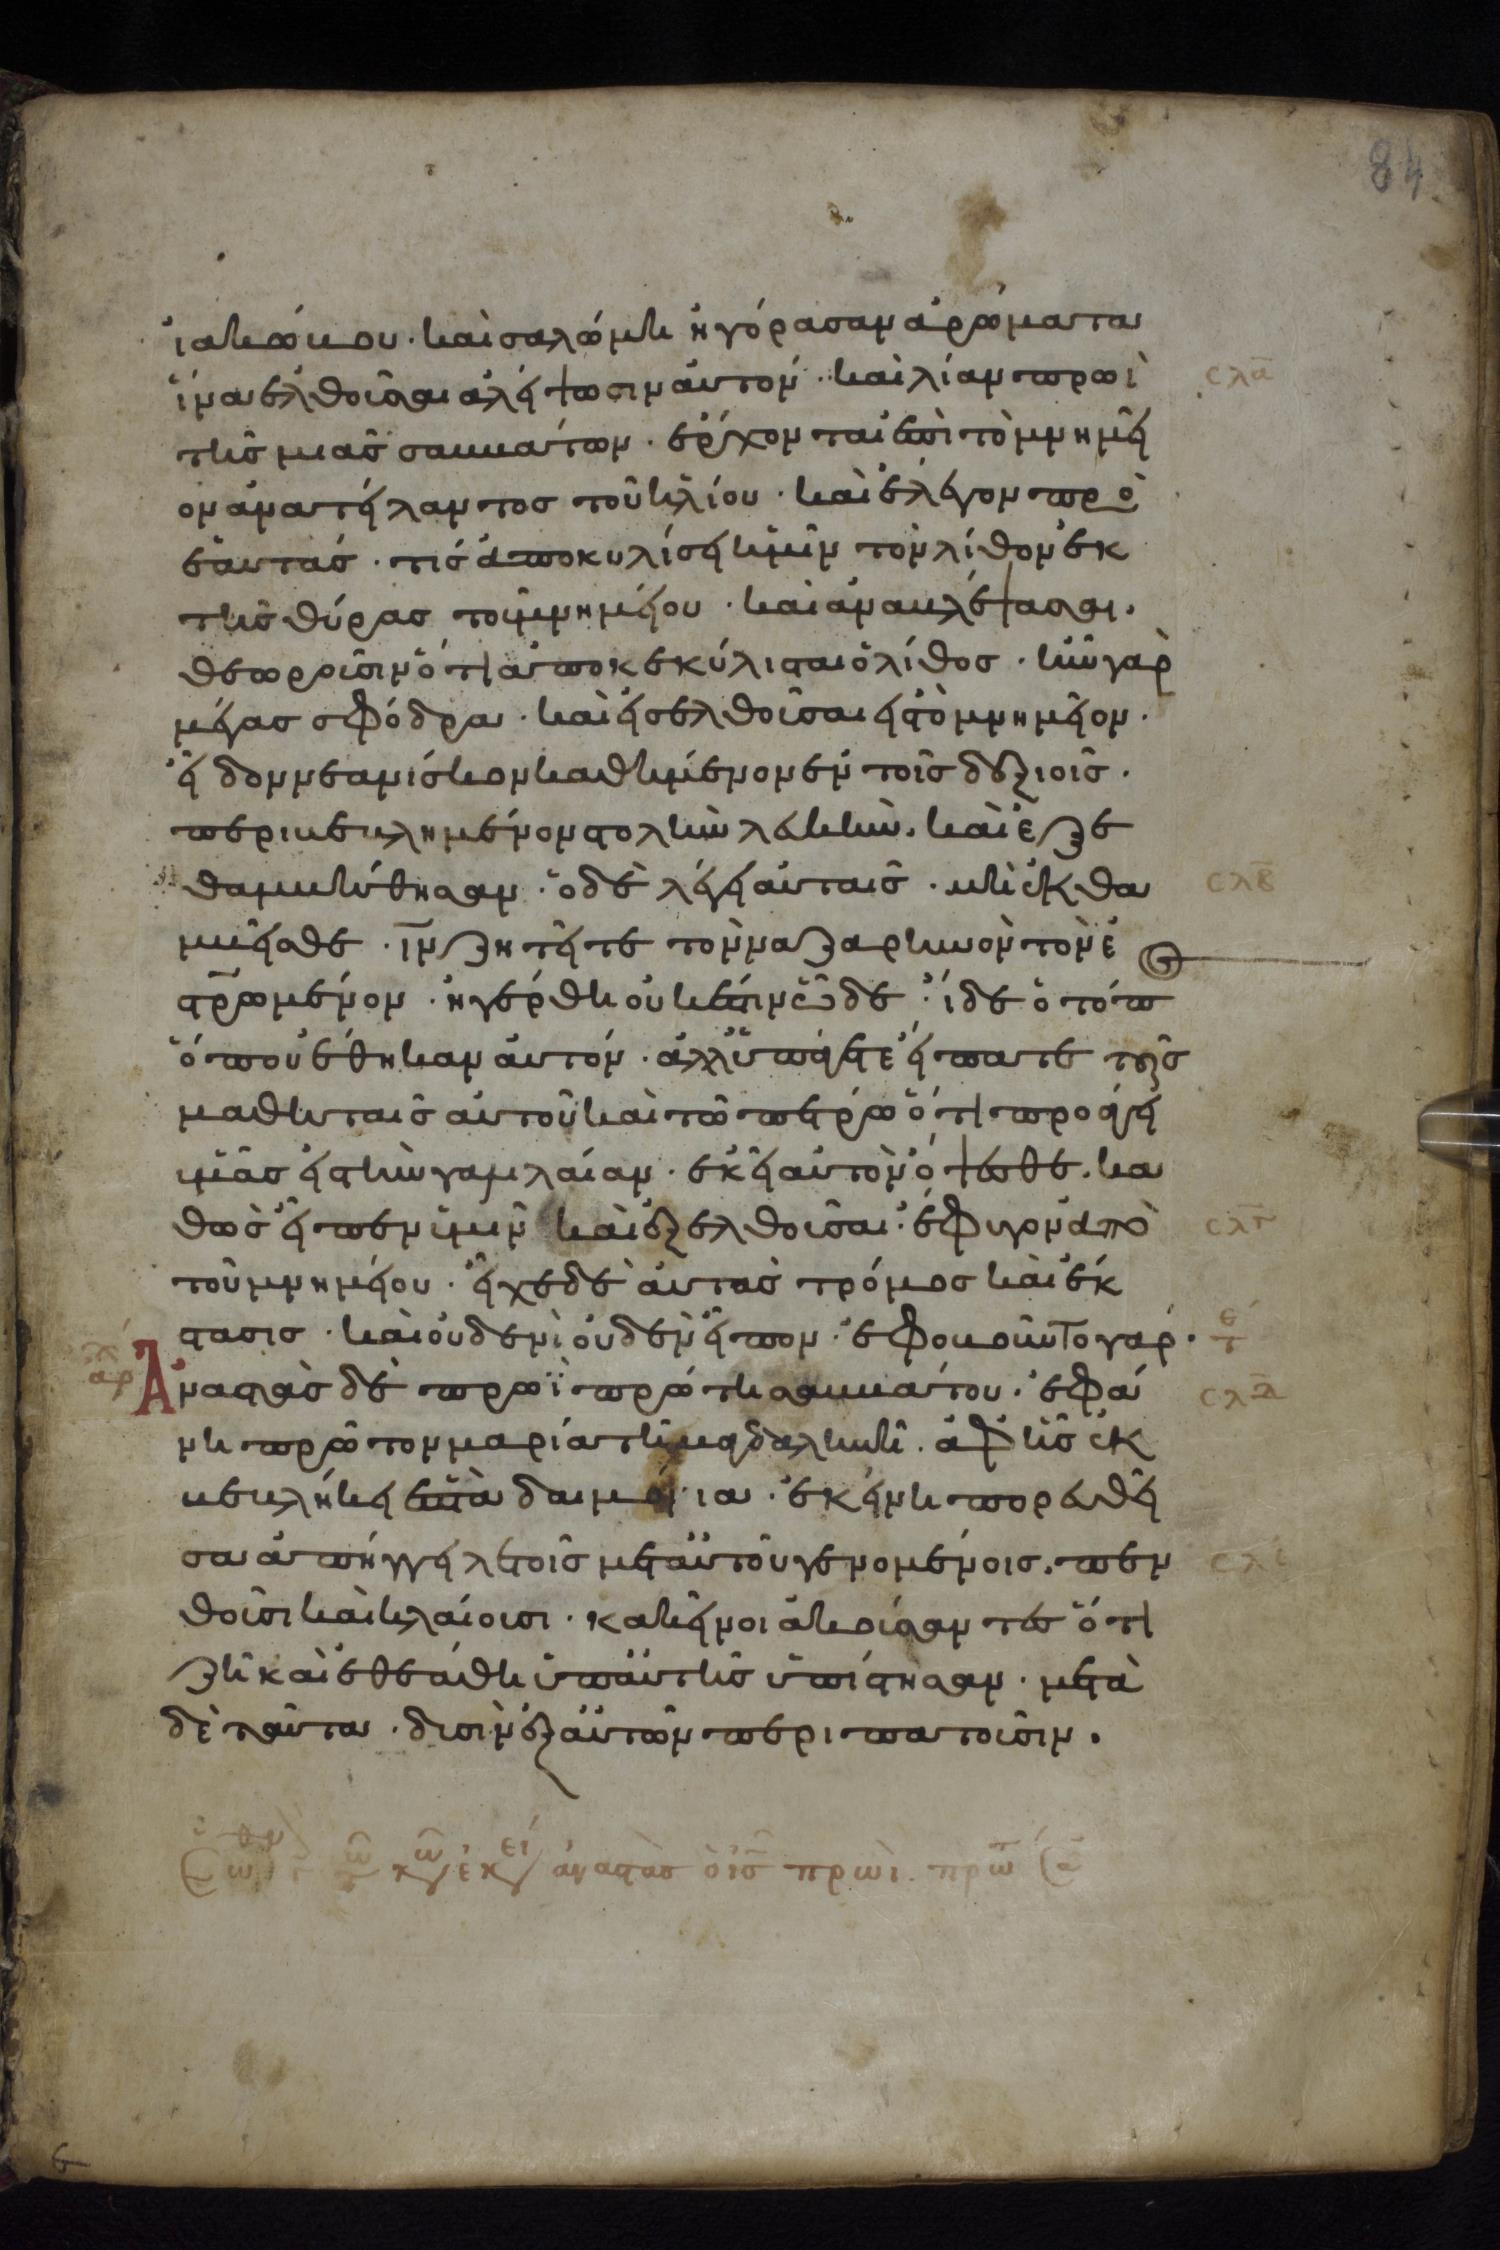 84
ἰακώβου· καὶ σαλώμη ἠγόρασαν ἀρώματα
ἵνα ἐλθοῦσαι ἀλείψωσιν αὐτόν· καὶ λίαν πρωῒ σλα
τῆς μιᾶς σαββάτων· ἔρχονται ἐπὶ τὸ μνημεῖ
ον ἀνατείλαντος τοῦ ἡλίου· καὶ ἔλεγον πρὸ
ἑαυτάς· τίς ἀποκυλίσει ἡμῖν τὸν λίθον ἐκ
τῆς θύρας τοῦ μνημείου· καὶ ἀναβλέψασαι·
θεωροῦσιν ὅτι ἀποκεκύλισται ὁ λίθος· ἦν γὰρ
μέγας σφόδρα· καὶ εἰσελθοῦσαι εἰς τὸ μνημεῖον·
εἶδον νεανίσκον καθήμενον ἐν τοῖς δεξιοῖς·
περιβεβλημένον στολὴν λευκὴν· καὶ ἐξε
θαμβήθησαν· ὁ δὲ λέγει αὐταῖς· μὴ ἐκθα σλβ
μβεῖσθε· ιν ζητεῖτε τὸν ναζαρηνὸν τὸν ἐ
στρωμένον· ἠγέρθη οὐκ ἔστιν ὧδε· ἴδε ὁ τόπ
ὅπου ἔθηκαν αὐτόν· ἀλλ' ὑπάγετε εἴπατε τοῖς
μαθηταῖς αὐτοῦ καὶ τῶ πέτρω ὅτι προάγει
ὑμᾶς εἰς τὴν γαλιλαίαν· ἐκεῖ αὐτὸν ὄψεσθε· κα
θὼς εἶπεν ὑμῖν καὶ ἐξελθοῦσαι· ἔφυγον ἀπὸ σλγ
τοῦ μνημείου· εἶχε δὲ αὐτὰς τρόμος καὶ ἔκ
στασις· καὶ οὐδενὶ οὐδὲν εἶπον· ἐφοβοῦντο γάρ·
αρ Ἀναστὰς δὲ πρωῒ πρώτη σαββάτου· ἐφά σλδ
νη πρῶτον μαρία τῆ μαγδαληνῆ· ἀφ' ἧς ἐκ
βεβλήκει ἑπτὰ δαιμόνια· ἐκείνη πορευθεῖ
σα ἀπήγγειλε τοῖς μετ' αὐτοῦ γενομένοις· πεν σλε
θοῦσι καὶ κλαίουσι· κακεῖνοι ἀκούσαντες ὅτι
ζῆ καὶ ἐθεάθη ὑπ' αὐτῆς ἠπίστησαν· μετὰ
δὲ ταῦτα· δυσὶν ἐξ αὐτῶν περιπατοῦσιν·
ἀναστὰς ὁ ις πρωῒ